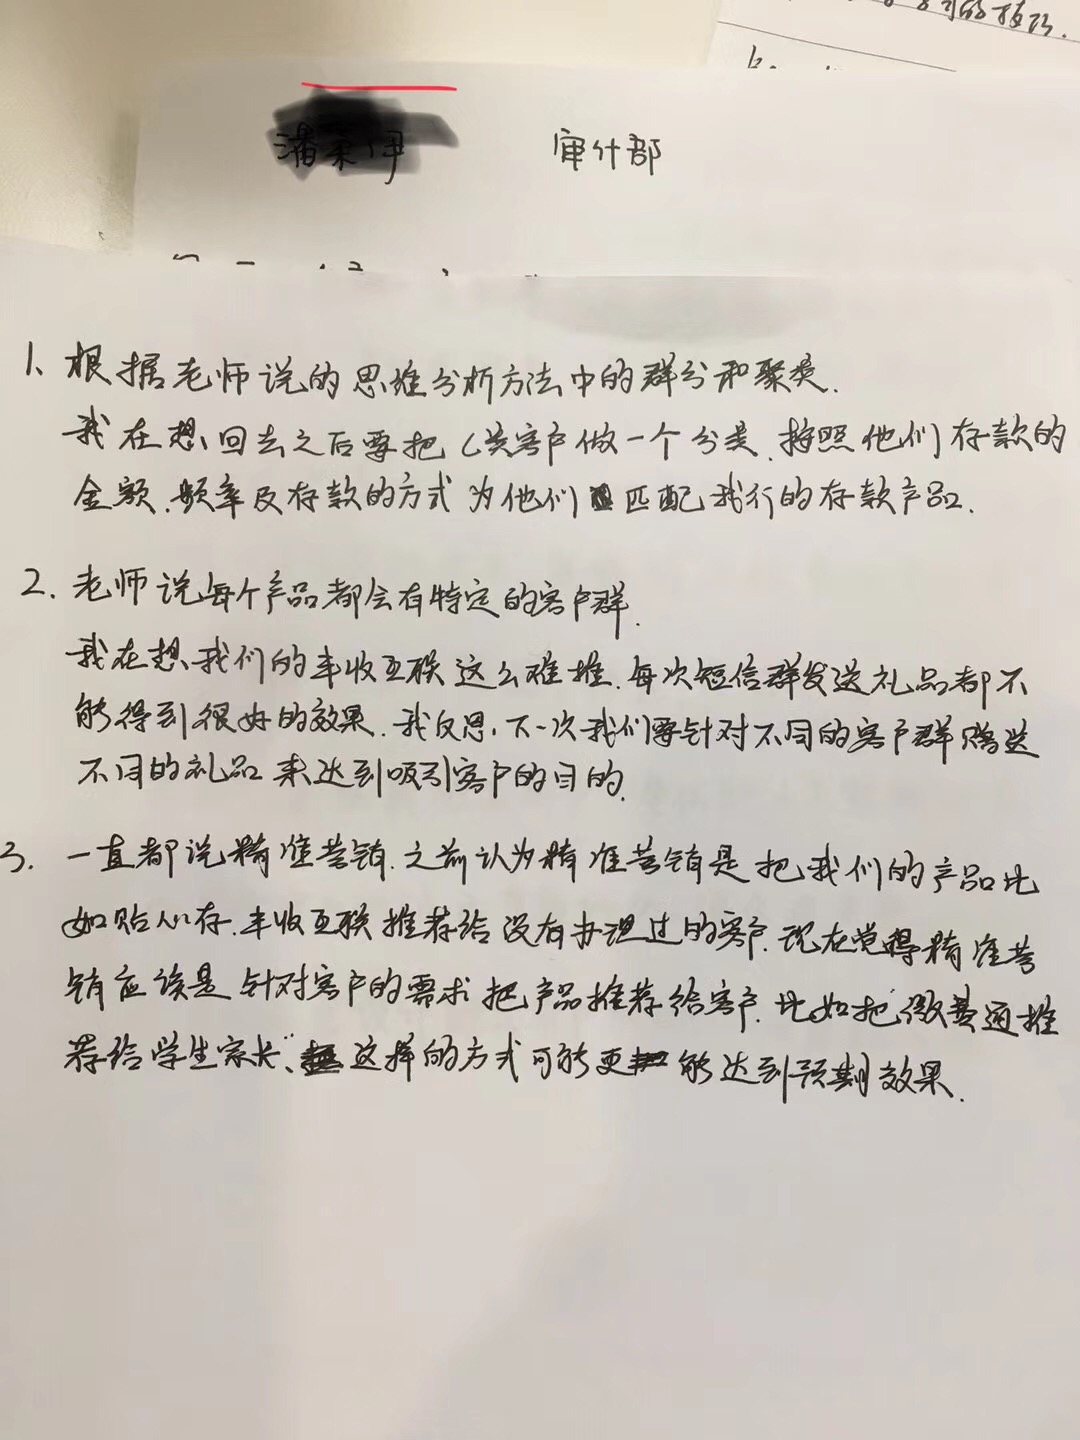 的技巧.
审计部
1、根据老师说的思维分析方法中的群分和聚类.
我在想,回去之后要把C类客户做一个分类.按照他们存款的
金额.频率及存款的方式为他们匹配我行的存款产品.
2.老师说每个产品都会有特定的客户群.
我在想,我们的丰收互联这么难推.每次短信群发送礼品都不
能得到很好的效果.我反思,下一次我们要针对不同的客户群赠送
不同的礼品来达到吸引客户的目的.
3.一直都说精准营销.之前认为精准营销是把我们的产品比
如贴心存.丰收互联推荐给没有办理过的客户.现在觉得精准营
销应该是针对客户的需求把产品推荐给客户.比如把"缴费通推
荐给学生家长".这样的方式可能更能达到预期效果.